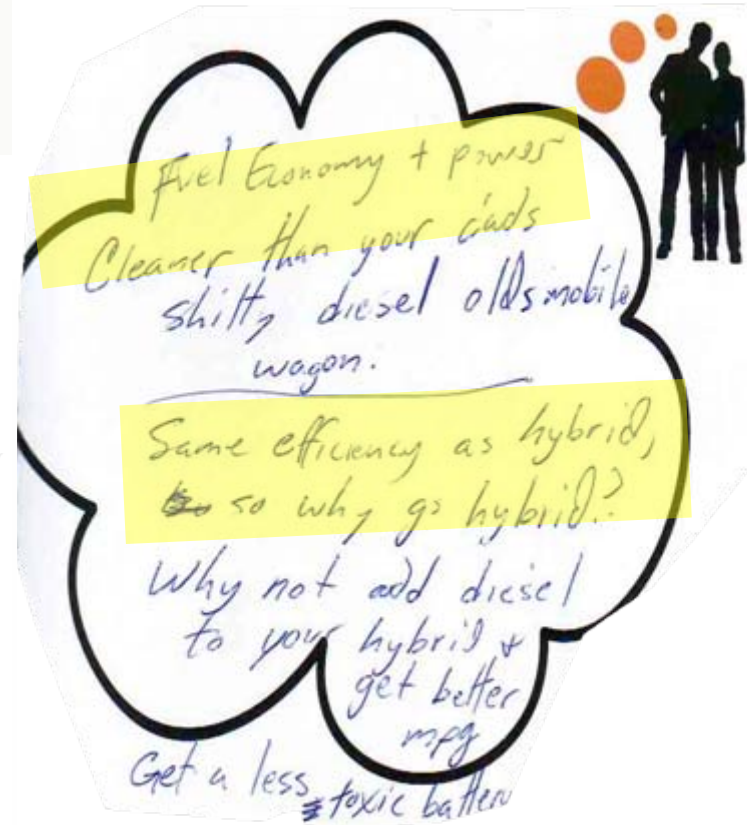 Fuel Economy + power
Cleaner than your dads
shitty diesel oldsmobile
wagon.
Same efficiency as hybrid,
so why go hybrid?
Why not add diesel
to your hybrid +
get better
mpg
Get a less
toxic battery